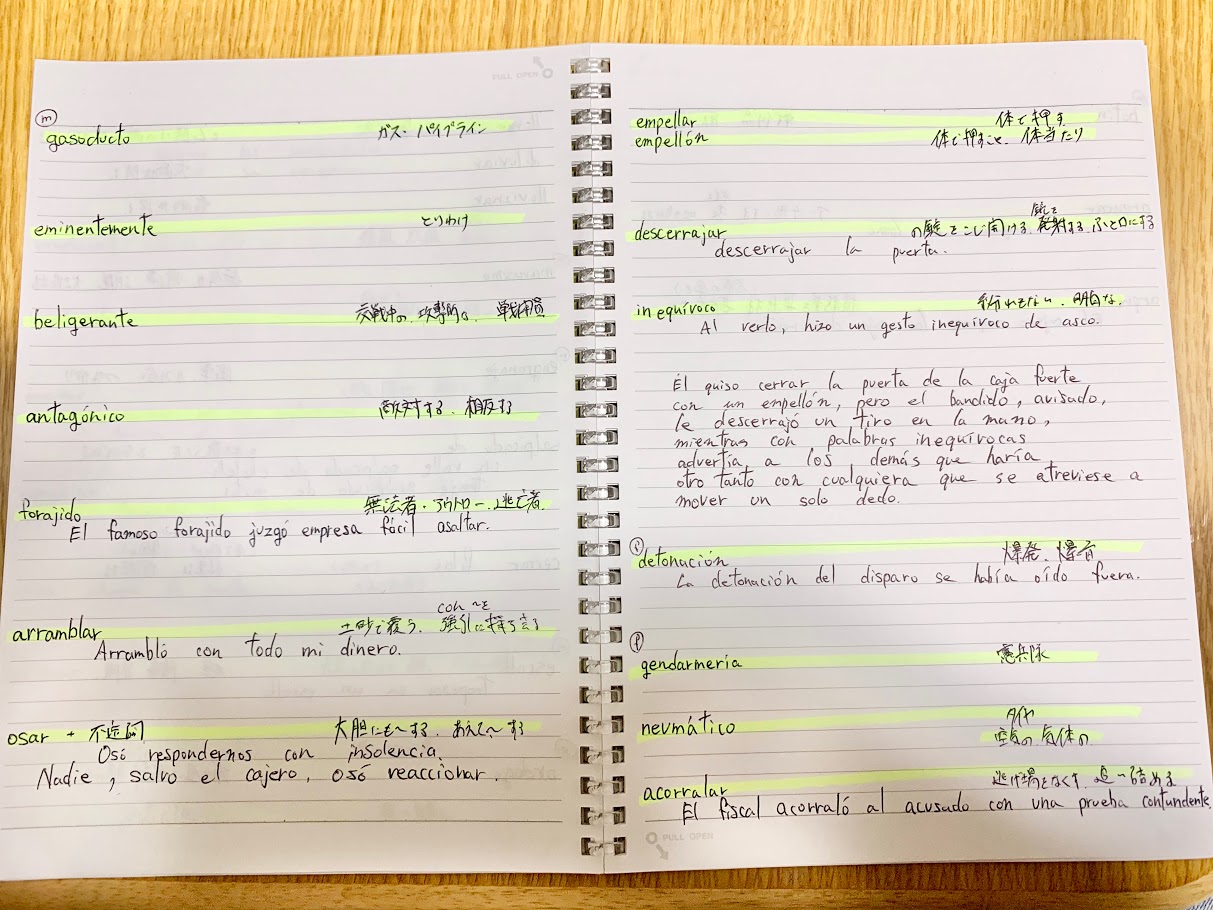 PULL OPEN
m
gasoducto ガス・パイプライン
eminentemente とりわけ
beligerante 交戦中の、攻撃的な、戦闘員
antagónico 敵対する、相反する
forajido 無法者・アウトロー、逃亡者
El famoso forajido juzgó empresa fácil asaltar.
con ~を
arramblar 土砂で覆う、強引に持ち去る
Arrambló con todo mi dinero.
osar + 不定詞 大胆にも~する、あえて~する
Osó respondernos con insolencia.
Nadie, salvo el cajero, osó reaccionar.
empellar 体で押す
empellón 体で押すこと、体当たり
銃を
descerrajar の錠をこじ開ける、発射する、ふと口にする
descerrajar la puerta.
inequívoco 紛れもない、明白な
Al verlo, hizo un gesto inequívoco de asco.
Él quiso cerrar la puerta de la caja fuerte
con un empellón, pero el bandido, avisado,
le descerrajó un tiro en la mano,
mientras con palabras inequívocas
advertía a los demás que haría
otro tanto con cualquiera que se atreviese a
mover un solo dedo.
f
detonación 爆発、爆音
La detonación del disparo se había oído fuera.
f
gendarmeria 憲兵隊
タイヤ
neumático 空気の、気体の
acorralar 逃げ場をなくす、追い詰める
El fiscal acorraló al acusado con una prueba contundente.
PULL OPEN